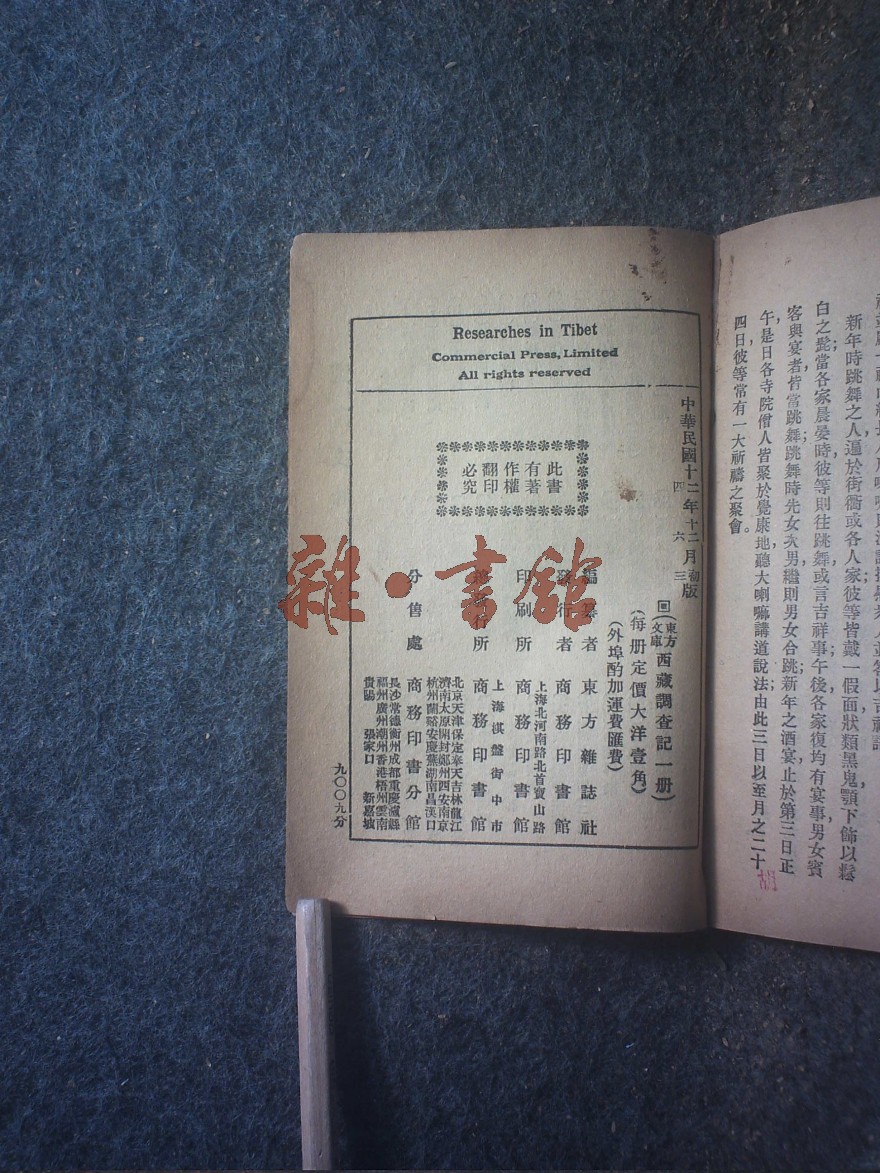 神說
新年時跳舞之人遍於街衢或各人家彼等皆戴一假面狀類黑鬼顎下飾以鬆
白之髭當各家晨晏時彼等則往跳舞或言吉祥事午後各家復均有宴事男女賓
客與宴者皆當跳舞跳舞時先女次男繼則男女合跳新年之酒宴止於第三日正
午是日各寺院僧人皆聚於覺康地聽大喇嘛講道說法由此三日以至月之二十
四日彼等常有一大祈禱之聚會。
胡
Researches in Tibet
Commercial Press, Limited
All rights reserved
中華民國十二年十二月初版
四 六 三
東方文庫 西藏調查記一册)
(每册定價大洋壹角)
(外埠酌加運費匯費)
此書
有著
作權
翻印
必究
編纂者 東方雜誌社
發行者 商務印書館
上海北河南路北首寶山路
印刷所 商務印書館
上海棋盤街中市
總發行所 商務印書館
分售處 商務印書分館
北京天津保定奉天吉林龍江
濟南太原開封鄭州西安南京
杭州蘭谿安慶蕪湖南昌漢口
長沙常德衡州成都重慶瀘縣
福州廣州潮州香港梧州雲南
貴陽 張家口 新嘉坡
九〇〇九分
雜·書館